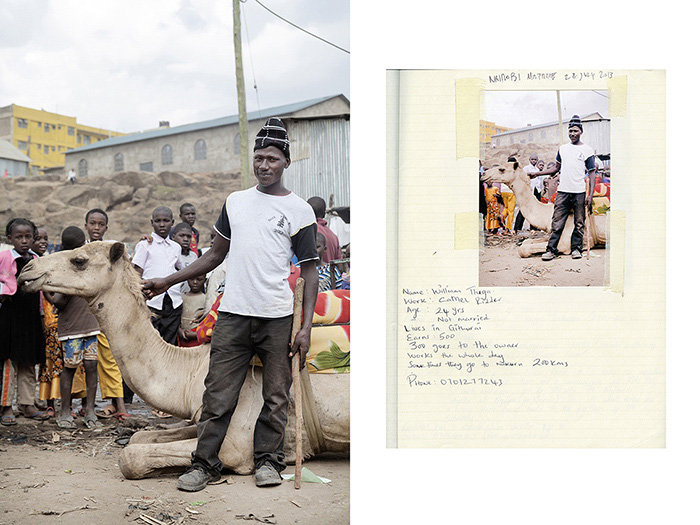 NAIROBI MATHARE 28 July 2013
Name: William Thuga
Work: Camel Rider
Age: 24 yrs
Not married
Lives in Githurai
Earns: 500
300 goes to the owner
Works the whole day
Sometimes they go to Nakuru 200 kms
Phone: 0701277243